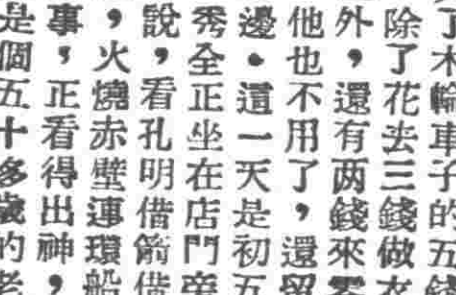 了木輪車子的五錢
除了花去三錢做衣
外，還有两錢來零
他也不用了，還留
邊。這一天是初五
秀全正坐在店門旁
說，看孔明借箭借
，火燒赤壁連環船
事，正看得出神，
是個五十多歲的老